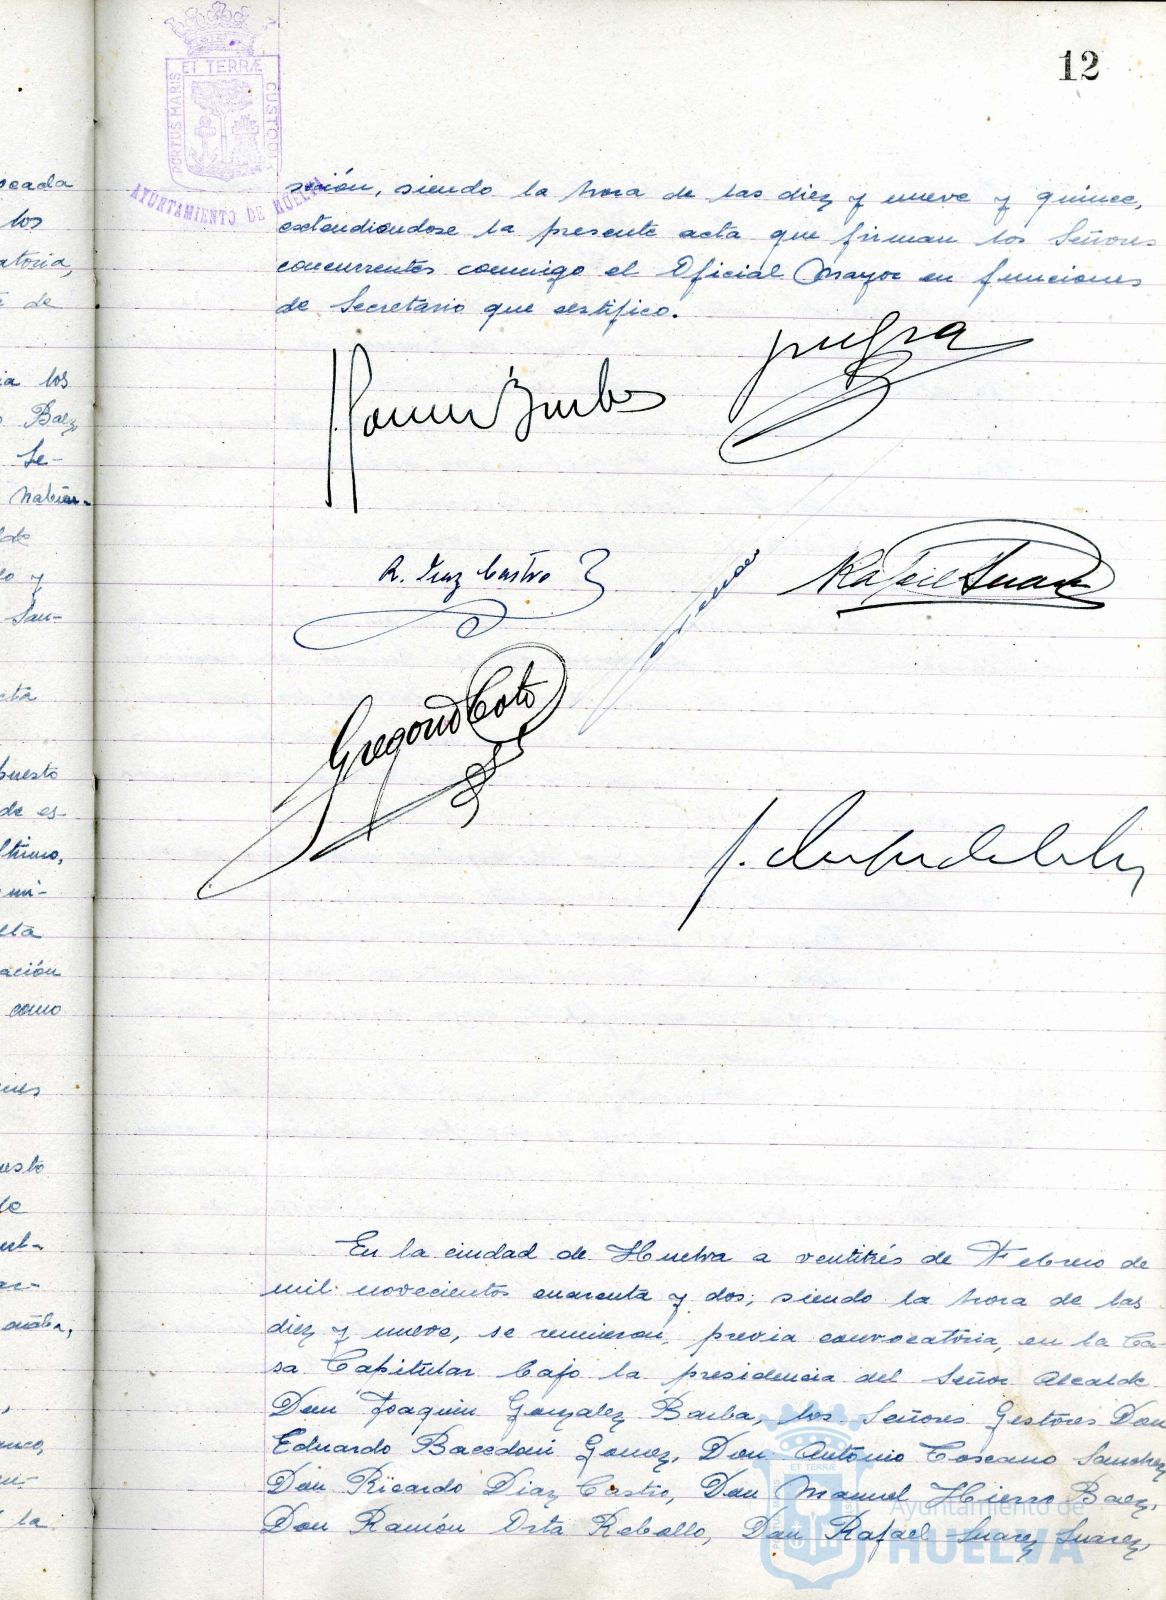 12
PORTUS MARIS ET TERRÆ CUSTODI
AYUNTAMIENTO DE HUELVA
sesión, siendo la hora de las diez y nueve y quince,
extendiendose la presente acta que firman los Señores
concurrentes conmigo el Oficial Mayor en funciones
de Secretario que certifico.
R. Diaz Castro
Rafael Suarez
Gregorio Coto
En la ciudad de Huelva a ventitrés de Febrero de
mil novecientos cuarenta y dos; siendo la hora de las
diez y nueve, se reunieron, previa convocatoria, en la Ca-
sa Capitular bajo la presidencia del Señor Alcalde
Don Joaquin Gonzalez Barba, los Señores Gestores Don
Eduardo Bacedoni Gomez, Don Antonio Toscano Sanchez
Don Ricardo Diaz Castro, Don Manuel Hierro Baez,
Don Ramón Orta Rebollo, Don Rafael Suarez Suarez,
Ayuntamiento de
HUELVA
ocada
los
atoria,
de
ia los
Baez
Se-
habien-
o y
San-
cta
puesto
de es-
ltimo,
mi-
ación
como
uesto
la